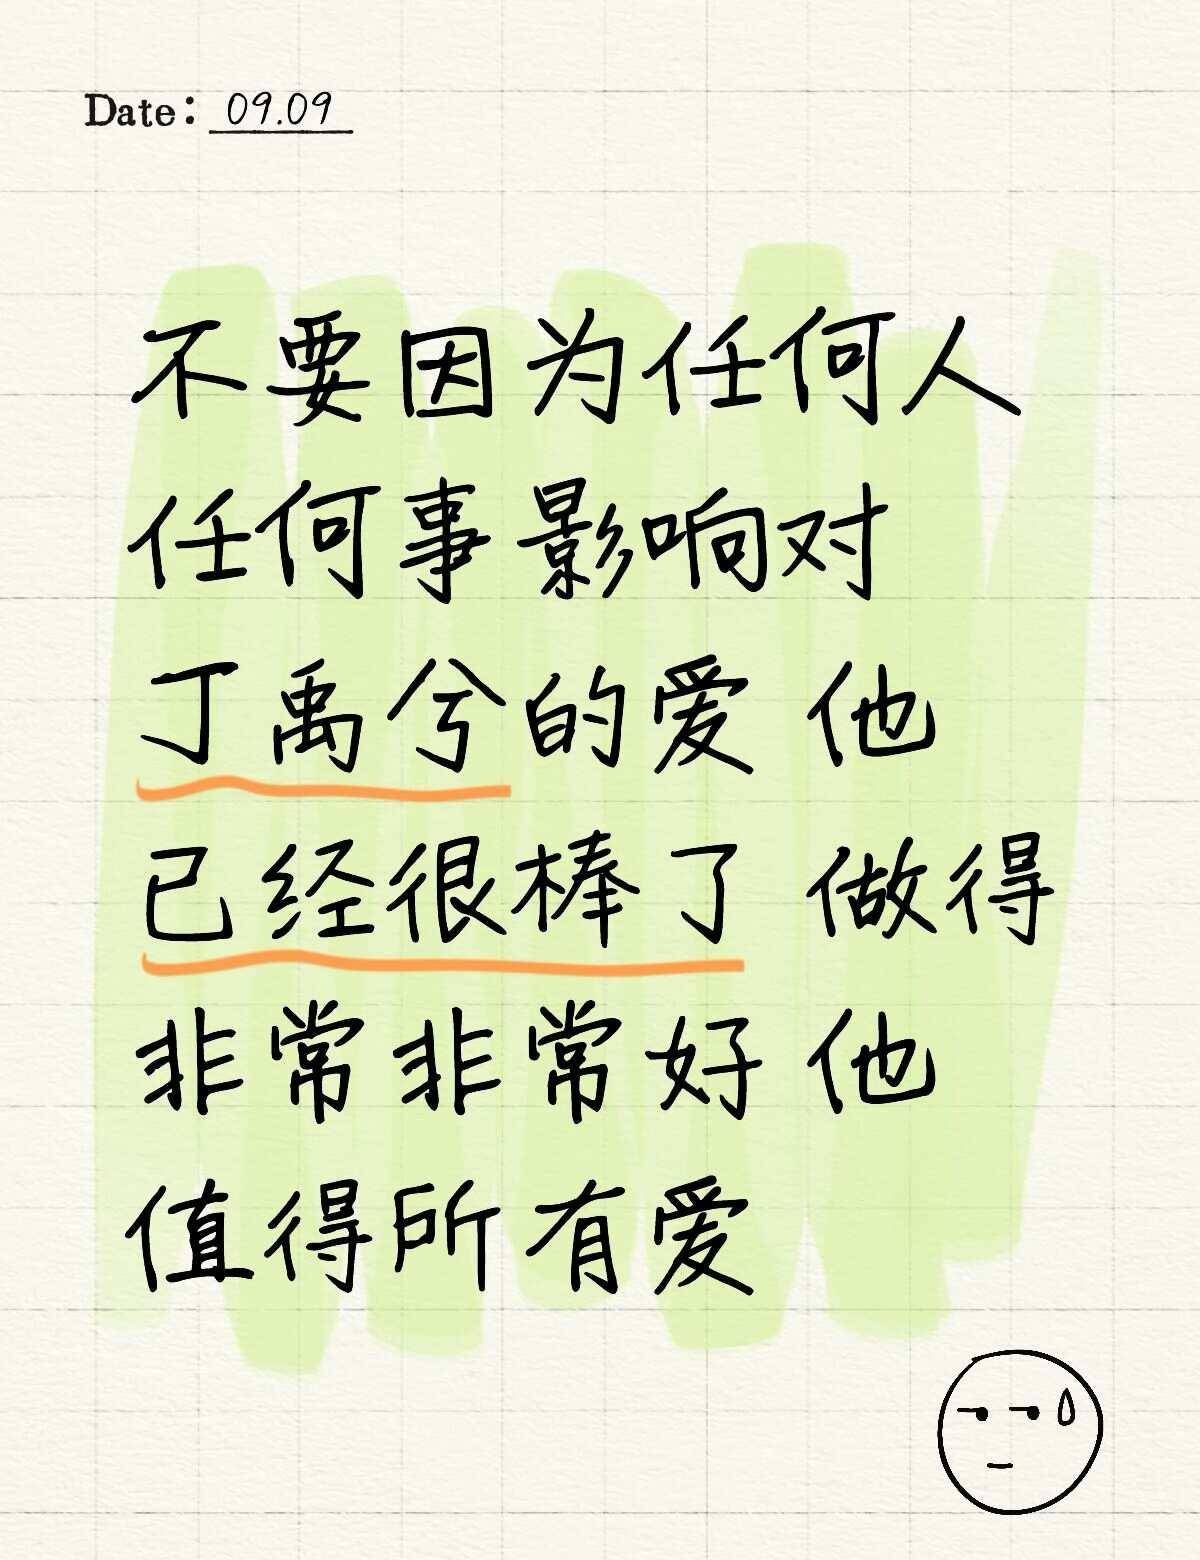 Date: 09.09
不要因为任何人
任何事影响对
丁禹兮的爱 他
已经很棒了 做得
非常非常好 他
值得所有爱